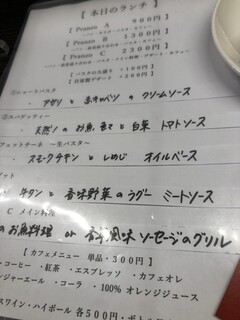 【 本日のランチ 】
【 Pranzo A 800円 】
【 Pranzo B 1300円 】
【 Pranzo C 2300円 】
【 パスタの大盛り +100円 】
【 自家製デザート +200円 】
①ショートパスタ
・アサリ と 赤キャベツ の クリームソース
②スパゲッティー
・天然 の お魚 と 白菜 トマトソース
フェットチーネ ～生パスタ～
・スモークチキン と しめじ オイルベース
・牛タン と 香味野菜のラグー ミートソース
C メイン料理
のお魚料理 or 香草風味 ソーセージのグリル
【カフェメニュー 単品・300円】
コーヒー ・紅茶 ・エスプレッソ ・カフェオレ
ンジャーエール ・コーラ ・100％ オレンジジュース
スワイン・ハイボール 各500円・ボトル